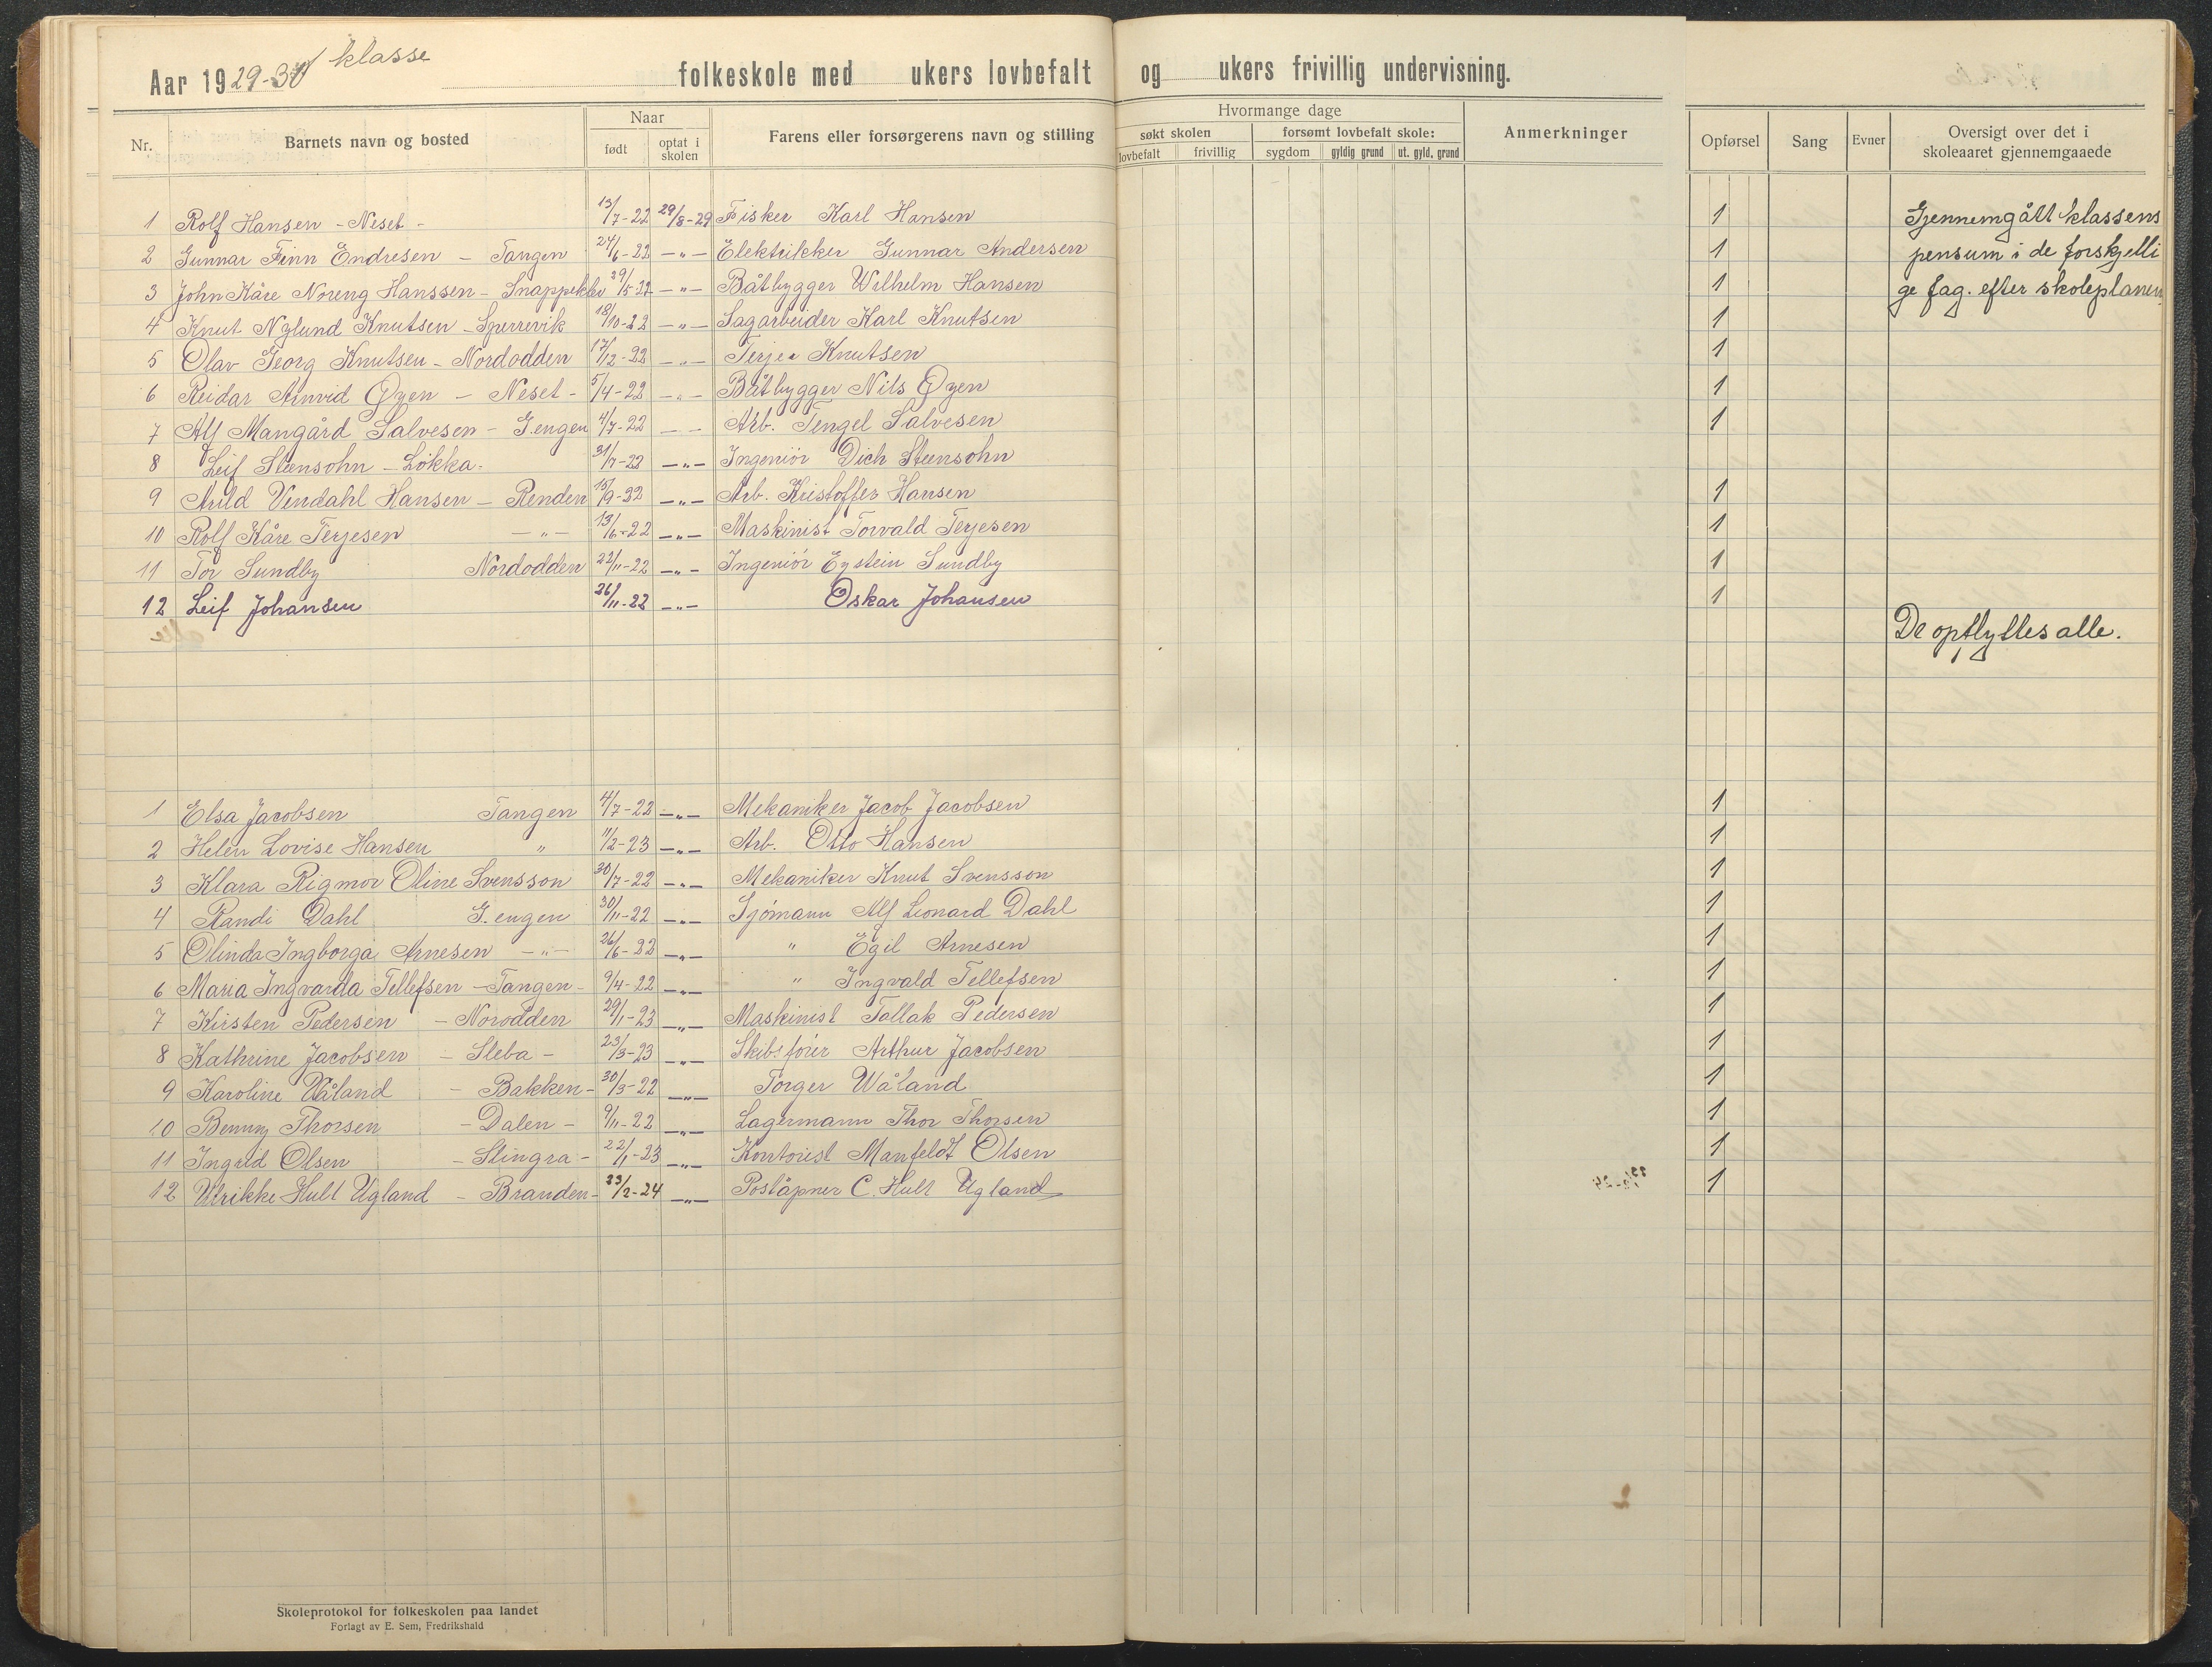 Aar 1929-30 / klasse folkeskole med ukers lovbefalt og ukers frivillig undervisning.
Nr. Barnets navn og bosted Naar født optat i skolen Farens eller forsørgerens navn og stilling Hvormange dage søkt skolen lovbefalt frivillig forsømt lovbefalt skole: sygdom gyldig grund ut. gyld. grund Anmerkninger Opførsel Sang Evner Oversigt over det i skoleaaret gjennemgaaede
1 Rolf Hansen - Neset - 13/7-22 29/8-29 Fisker Karl Hansen 1 Gjennemgått klassens
2 Gunnar Finn Endresen - Tangen 24/6-22 - " - Elektrikker Gunnar Andersen 1 pensum i de forskjelli
3 John Kåre Noreng Hanssen - Snappekler 29/5-22 - " - Båtbygger Wilhelm Hansen 1 ge fag. efter skoleplanen
4 Knut Nylund Knutsen - Sperrevik 18/10-22 - " - Sagarbeider Karl Knutsen 1
5 Olav Georg Knutsen - Nordodden 17/12-22 - " - Terjer Knutsen 1
6 Reidar Arnvid Øyen - Neset - 5/4-22 - " - Båtbygger Nils Øyen 1
7 Alf Mangård Salvesen - G.engen 4/7-22 - - Arb. Tengel Salvesen 1
8 Leif Steensohn - Løkka - 31/7-22 - " - Ingeniør Dich Steensohn
9 Arild Vindahl Hansen - Renden 15/9-22 - " - Arb. Kristoffer Hansen 1
10 Rolf Kåre Terjesen - " - 13/6-22 - " - Maskinist Torvald Terjesen 1
11 Tor Sundby Nordodden 22/11-22 - " - Ingeniør Eystein Sundby 1
12 Leif Johansen 26/11-22 - " - Oskar Johansen 1
De opflyttes alle.
1 Elsa Jacobsen Tangen 4/7-22 - " - Mekaniker Jacob Jacobsen 1
2 Helen Lovise Hansen " 11/2-23 - " - Arb. Otto Hansen 1
3 Klara Rigmor Oline Svensson 30/7-22 - " - Mekaniker Knut Svensson 1
4 Randi Dahl G. engen 30/11-22 - " - Sjømann Alf Leonard Dahl 1
5 Olinda Ingborga Arnesen - " - 26/6-22 - " - " Egil Arnesen 1
6 Maria Ingvarda Tellefsen - Tangen - 9/4-22 - " - " Ingvald Tellefsen 1
7 Kirsten Pedersen - Norodden 29/1-23 - " - Maskinist Tallak Pedersen 1
8 Kathrine Jacobsen - Sleba - 23/3-23 - " - Skibsfører Arthur Jacobsen 1
9 Karoline Våland - Bakken - 30/3-22 - " - Torger Wåland 1
10 Benny Thorsen - Dalen - 9/11-22 - " - Lagermann Thor Thorsen 1
11 Ingrid Olsen - Slingra - 22/1-23 - " - Kontorist Manfeldt Olsen 1
12 Ulrikke Hull Ugland - Branden - 23/2-24 - " - Poståpner C. Hull Ugland 1
Skoleprotokol for folkeskolen paa landet
Forlagt av E. Sem, Fredrikshald